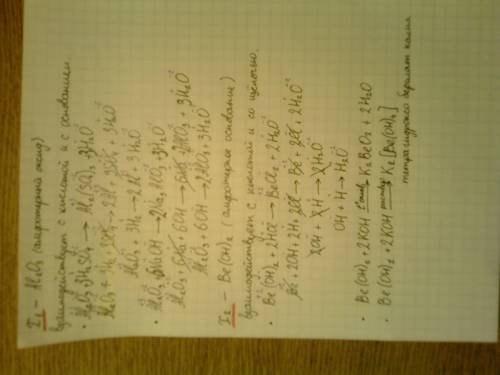 I₁ – Al₂O₃ (амфотерный оксид)
взаимодействует с кислотой и с основанием.
• Al₂O₃ + 3H₂SO₄ → Al₂(SO₄)₃ + 3H₂O
Al₂O₃ + 3H₂ + 3SO₄ → 2Al + 3SO₄ + 3H₂O
Al₂O₃ + 3H₂ → 2Al + 3H₂O
Al₂O₃ + 6NaOH → 2Na₃AlO₃ + 3H₂O
Al₂O₃ + 6Na + 6OH → 6Na + 2AlO₃ + 3H₂O
Al₂O₃ + 6OH → 2AlO₃ + 3H₂O
I₂ – Be(OH)₂ (амфотерное основание)
взаимодействует с кислотой и со щёлочью.
• Be(OH)₂ + 2HCl → BeCl₂ + 2H₂O
Be + 2OH + 2H + 2Cl → Be + 2Cl + 2H₂O
2OH + 2H → 2H₂O
OH + H → H₂O
• Be(OH)₂ + 2KOH → K₂BeO₂ + 2H₂O
• Be(OH)₂ + 2KOH → K₂[Be(OH)₄]
тетрагидроксо бериллат калия